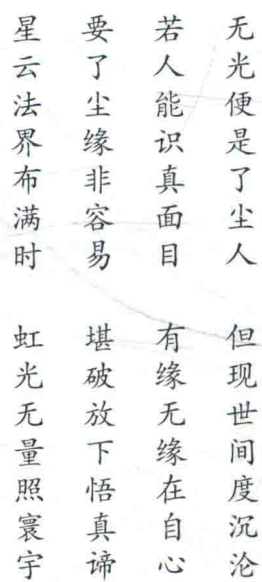 无光便是了尘人 但现世间度沉沦
若人能识真面目 有缘无缘在自心
要了尘缘非容易 堪破放下悟真谛
星云法界布满时 虹光无量照寰宇